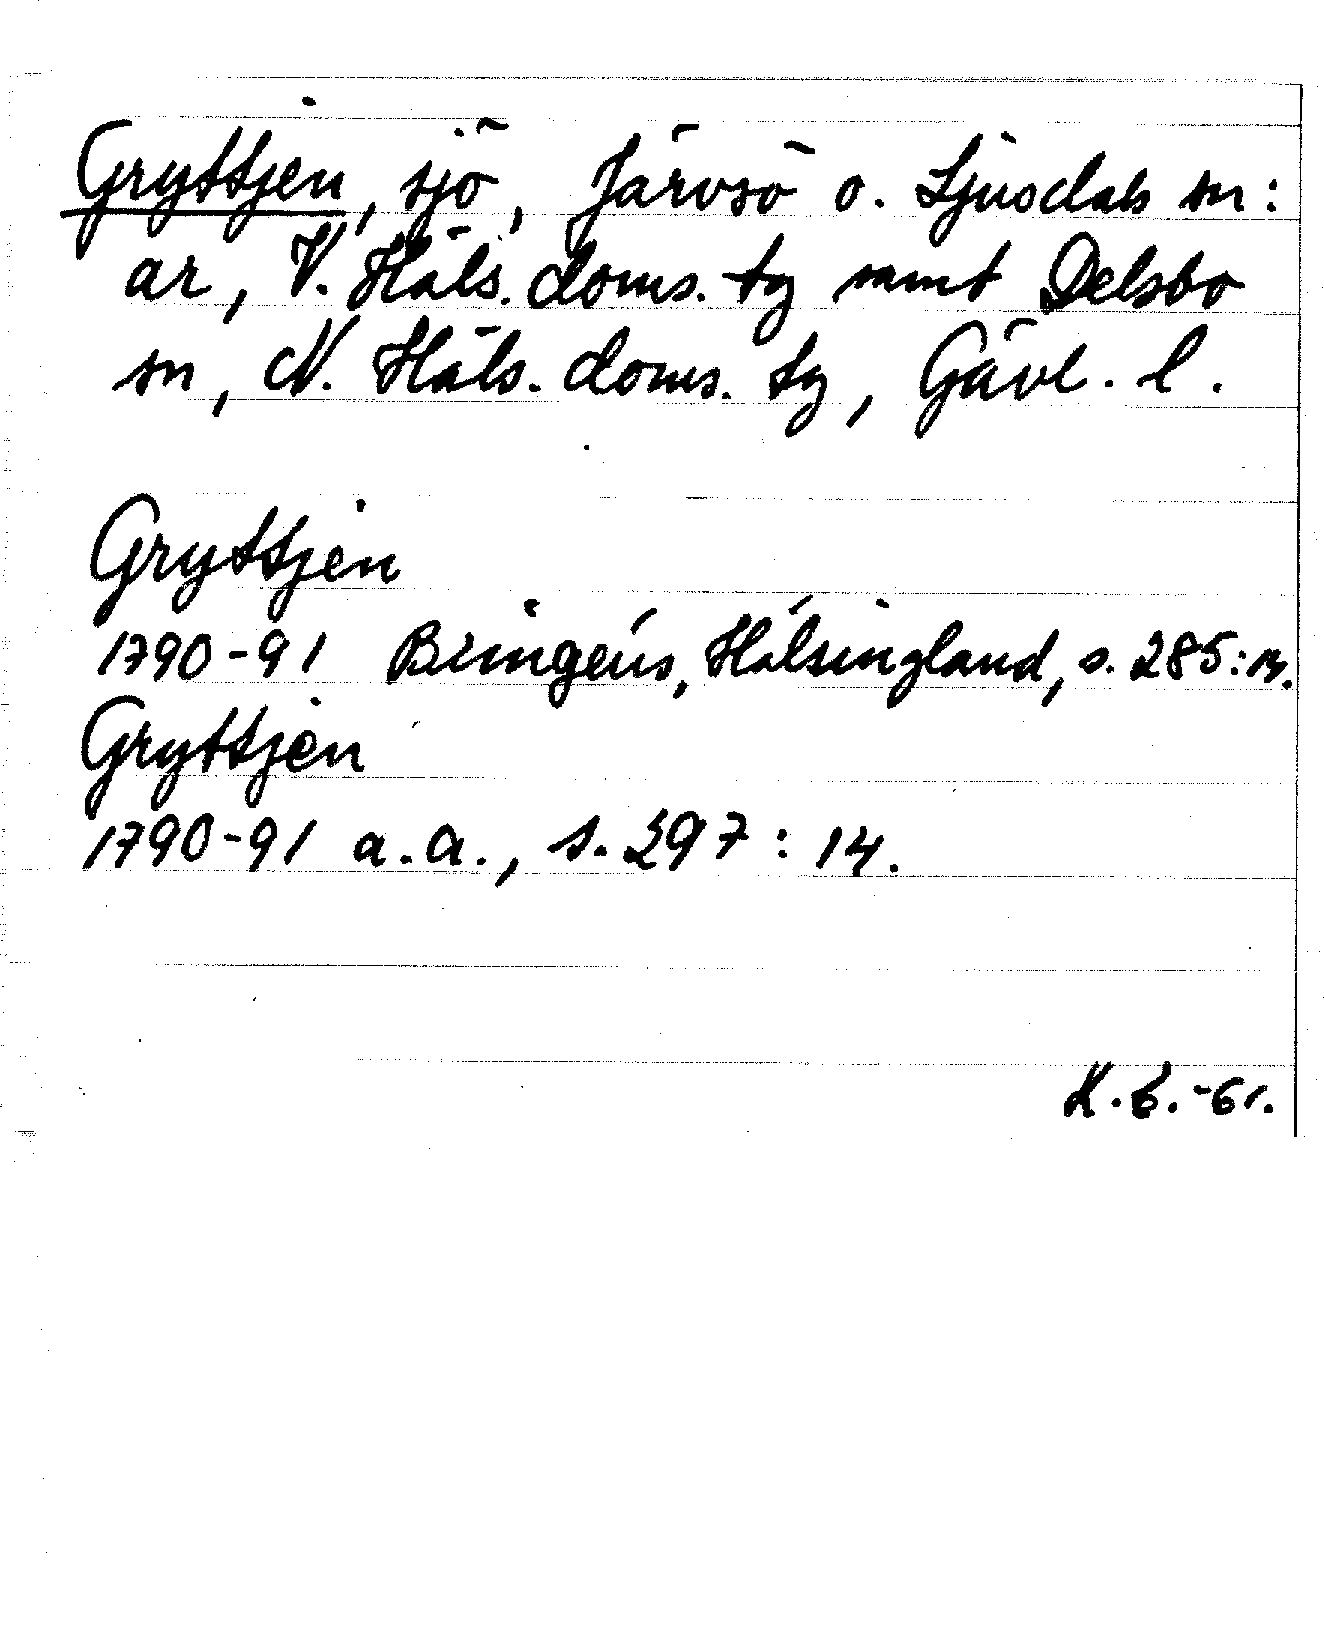 Gryttjen, sjö, Järvsö o. Ljusdals sn:
ar, V. Häls. doms. tg samt Delsbo
sn, N. Häls. doms. tg, Gävl. l.
Gryttjen
1790-91 Bringéus, Hälsingland, s. 285:
Gryttjen
1790-91 a.a., s. 297:14.
-61.